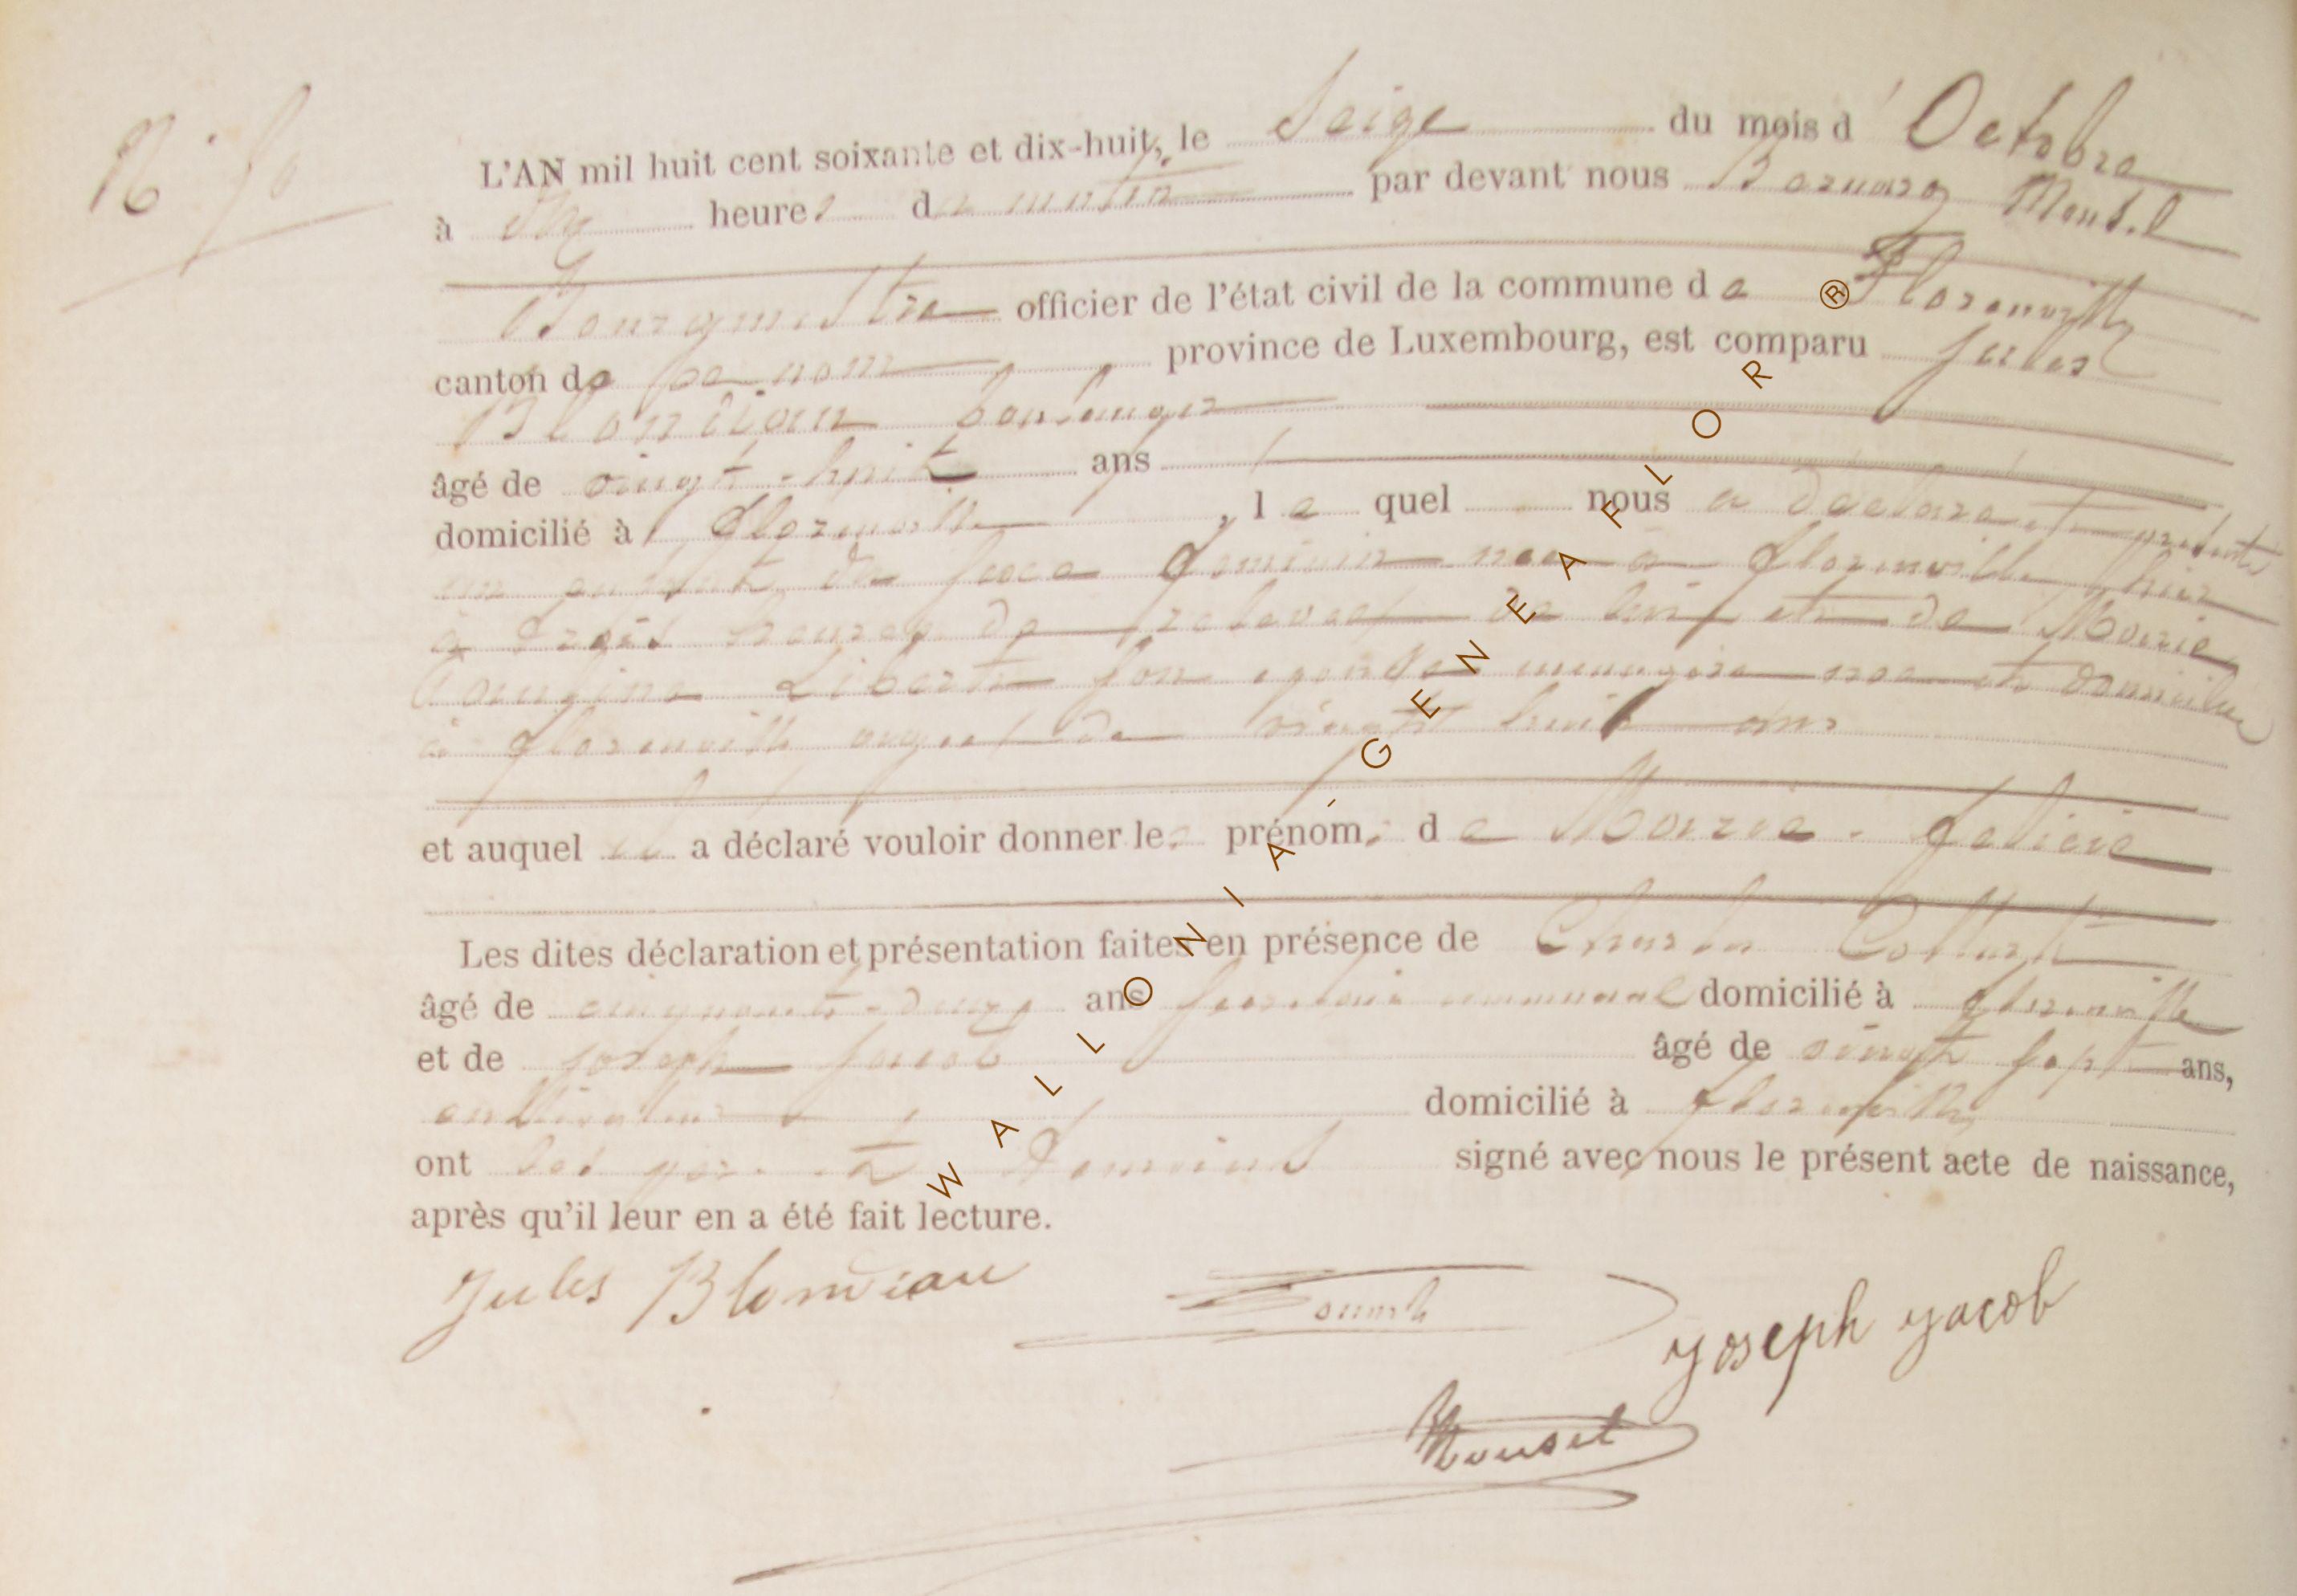 N° 50
L'AN mil huit cent soixante et dix-huit, le Seize du mois d'Octobre
à dix heures du matin par devant nous Bernard Mons.l
Bourgmestre officier de l'état civil de la commune de Florenville
canton de ce nom province de Luxembourg, est comparu Jules
Blondiau boulanger
âgé de vingt-huit ans
domicilié à Florenville, lequel nous a déclaré et présenté
un enfant du sexe féminin née à Florenville hier
à trois heures de relevée de lui et de Marie
Liberte son épouse ménagère née et domiciliée
à Florenville agée de vingt huit ans
et auquel il a déclaré vouloir donner les prénoms de Marie-Felicie
Les dites déclaration et présentation faites en présence de Charles Collart
âgé de cinquante-deux ans secrétaire communal domicilié à Florenville
et de Joseph Jacob âgé de vingt sept ans,
cultivateur domicilié à Florenville
ont les père et témoins signé avec nous le présent acte de naissance,
après qu'il leur en a été fait lecture.
Jules Blondiau
Joseph Jacob
Mousel
WALLONIA-GENEAFLOR®